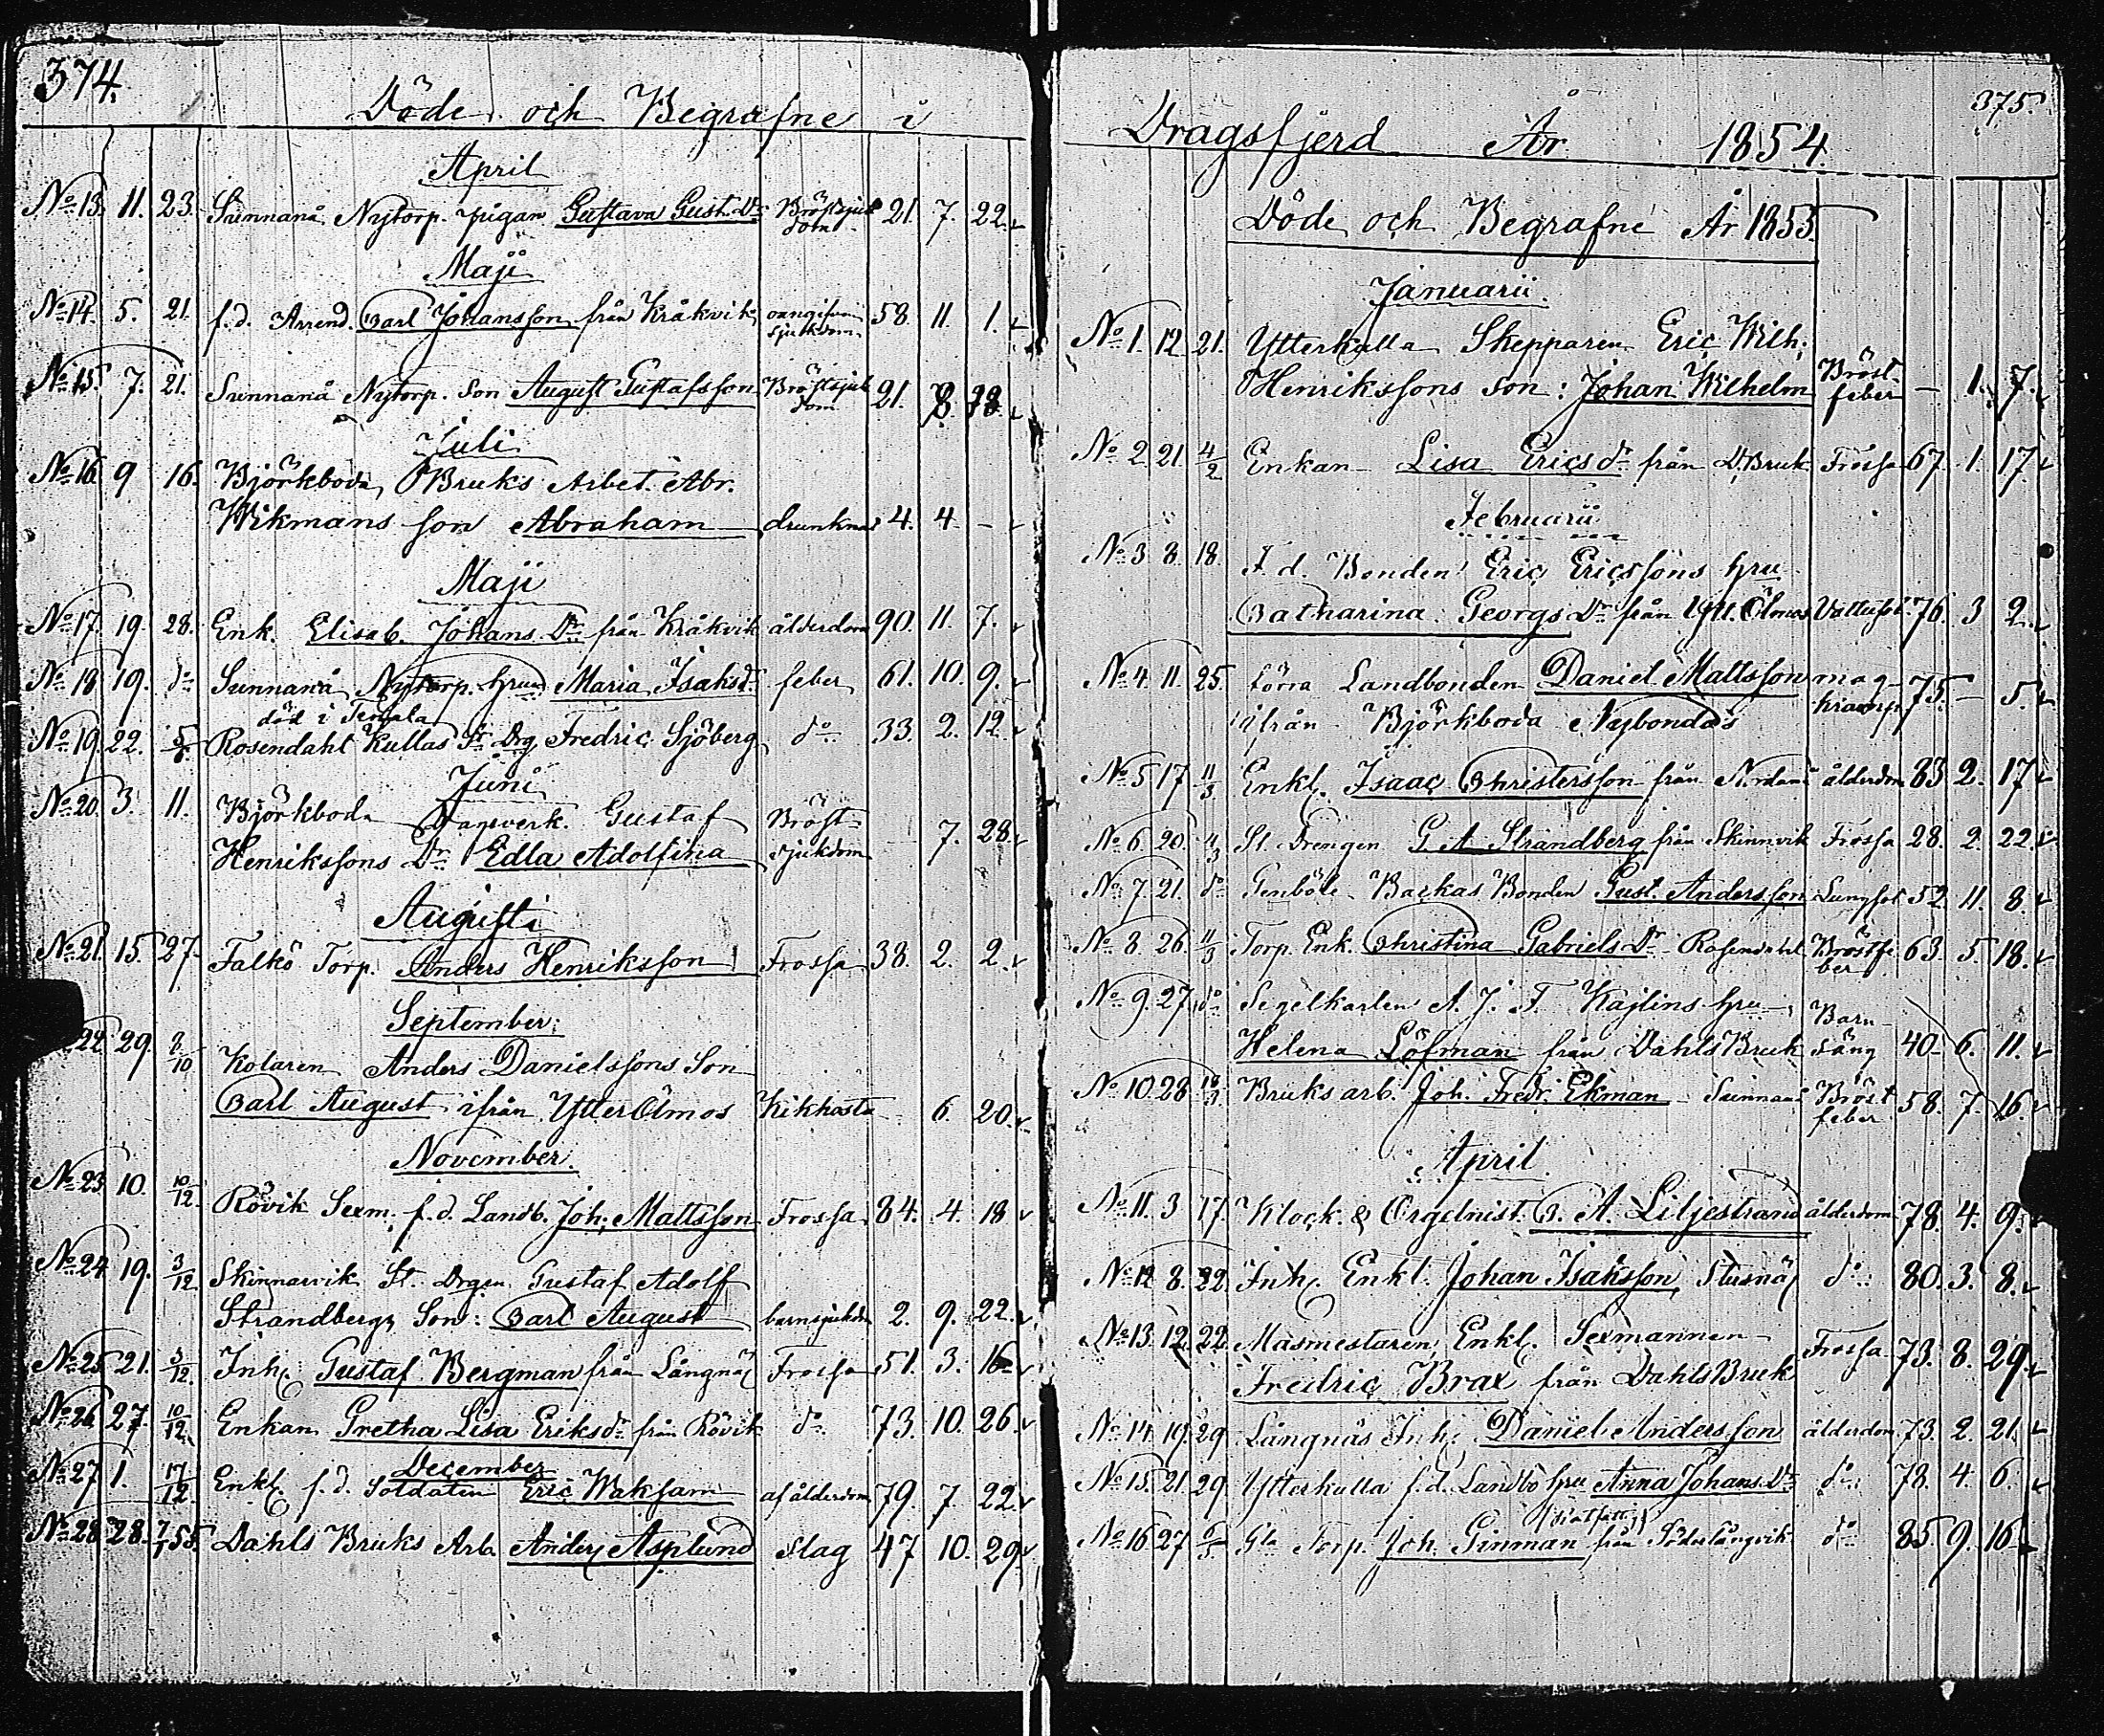 374.
Döde och Begrafne i
April
No 13. 11. 23. Sunnanå Nytorp. pigan Gustava Gust. Dr Bröstsjuk 21. 7. 22.
dom
Maji
No 14. 5. 21. f.d. Arrend. Carl Johansson från Kråkvik oangifven 58. 11. 1.
sjukdom
No 15 7. 21. Sunnanå Nytorp. Son August Gustafsson Bröstsjuk 21. 8.
dom
Juli
No 16. 9 16. Björkboda Bruks Arbet. Abr.
Wikmans son Abraham drunknad 4. 4 -
Maji
No 17. 19 28. Enk. Elisab. Johans Dr från Kråkvik ålderdom 90. 11. 7.
No 18 19. do Sunnanå Nytorp. hru Maria Isaksdr feber 61. 10. 9.
död i Tenala
No 19. 22. Rosendahl Kullas St Drg Fredric Sjöberg do 33. 2. 12.
Juni
No 20. 3. 11. Björkboda Dagsverk. Gustaf Bröst-
Henrikssons Dr Edla Adolfina sjukdom 7. 28.
Augusti
No 21. 15. 27. Falkö Torp. Anders Henriksson Frossa 38. 2. 2.
September.
22. 29. 8/10 Kolaren Anders Danielssons Son
Carl August ifrån Ytter Ölmos Kikhosta 6. 20.
November.
No 23 10. 10/12. Rövik Sexm. f.d. Landb. Joh. Mattsson Frossa 84. 4. 18
No 24 19. 3/12. Skinnarvik St. Drgen Gustaf Adolf
Strandbergs Son: Carl August barnsjukdm 2. 9. 22.
No 25 21. 3/12. Inh. Gustaf Bergman från Långnäs Frossa 51. 3. 16
No 26 27. 10/12. Enkan Gretha Lisa Eriksdr från Rövik do 73. 10. 26.
December
No 27 1. 17/12. Enkl. f.d. Soldaten Eric Waksam af ålderdom 79. 7. 22
No 28 28. 7/1 55. Dahls Bruks Arb. Anders Asplund slag 47 10. 29
375.
Dragsfjerd År 1854.
Döde och Begrafne År 1855.
Januarii.
No 1. 12 21. Ytterkulla Skepparen Eric Wilh.
Henrikssons Son: Johan Wilhelm Bröst- - 1. 7.
feber
No 2 21. 4/2 Enkan Lisa Ericsdr från D. Bruk Frossa 67. 1. 17.
Februarii
No 3 8. 18. F. d. Bonden Eric Ericssons hru
Catharina Georgs Dr från Ytt. Ölmos Vattusot 76. 3 2.
No 4 11 25. förra Landbonden Daniel Mattsson mag-
ifrån Björkboda Nybondas kramp 75. - 5.
No 5 17 11/3 Enkl. Isaac Christersson från Nordanå ålderdom 83 2. 17
No 6 20. 11/3 St. Drengen G. A Strandberg från Skinnvik Frossa 28. 2. 22.
No 7. 21. do Genböle Backas Bonden Gust. Andersson Lungsot 52. 11. 8.
No 8. 26. 11/3 Torp. Enk. Christina Gabriels Dr Rosendahl Bröstfe 63. 5. 18.
ber
No 9. 27. do Segelkarlen A. J. F. Kajlins hru Barn-
Helena Löfman från Dahls Bruk säng 40. 6. 11.
No 10. 28 18/3 Bruks arb. Joh. Fredr. Ekman Sunnanå Bröst 58. 7. 16.
feber
April
No 11. 3 17. Klock. & Orgelnist. C. A. Liljestrand ålderdom 78. 4. 9.
No 12 8. 22. Inh. Enkl. Johan Isaksson Stusnäs do 80. 3. 8.
No 13. 12. 22. Masmestaren, Enkl. Sexmannen
Fredric Brax från Dahls Bruk Frossa 73. 8. 29
No 14 19. 29 Långnäs Inh. Daniel Andersson ålderdom 73. 2. 21.
No 15. 21. 29 Ytterkulla f.d. Landbo hru Anna Johans Dr do 78. 4. 6.
No 16 27 6/5 Gla Torp. Joh. Ginman från Söderlångvik do 85. 9. 16